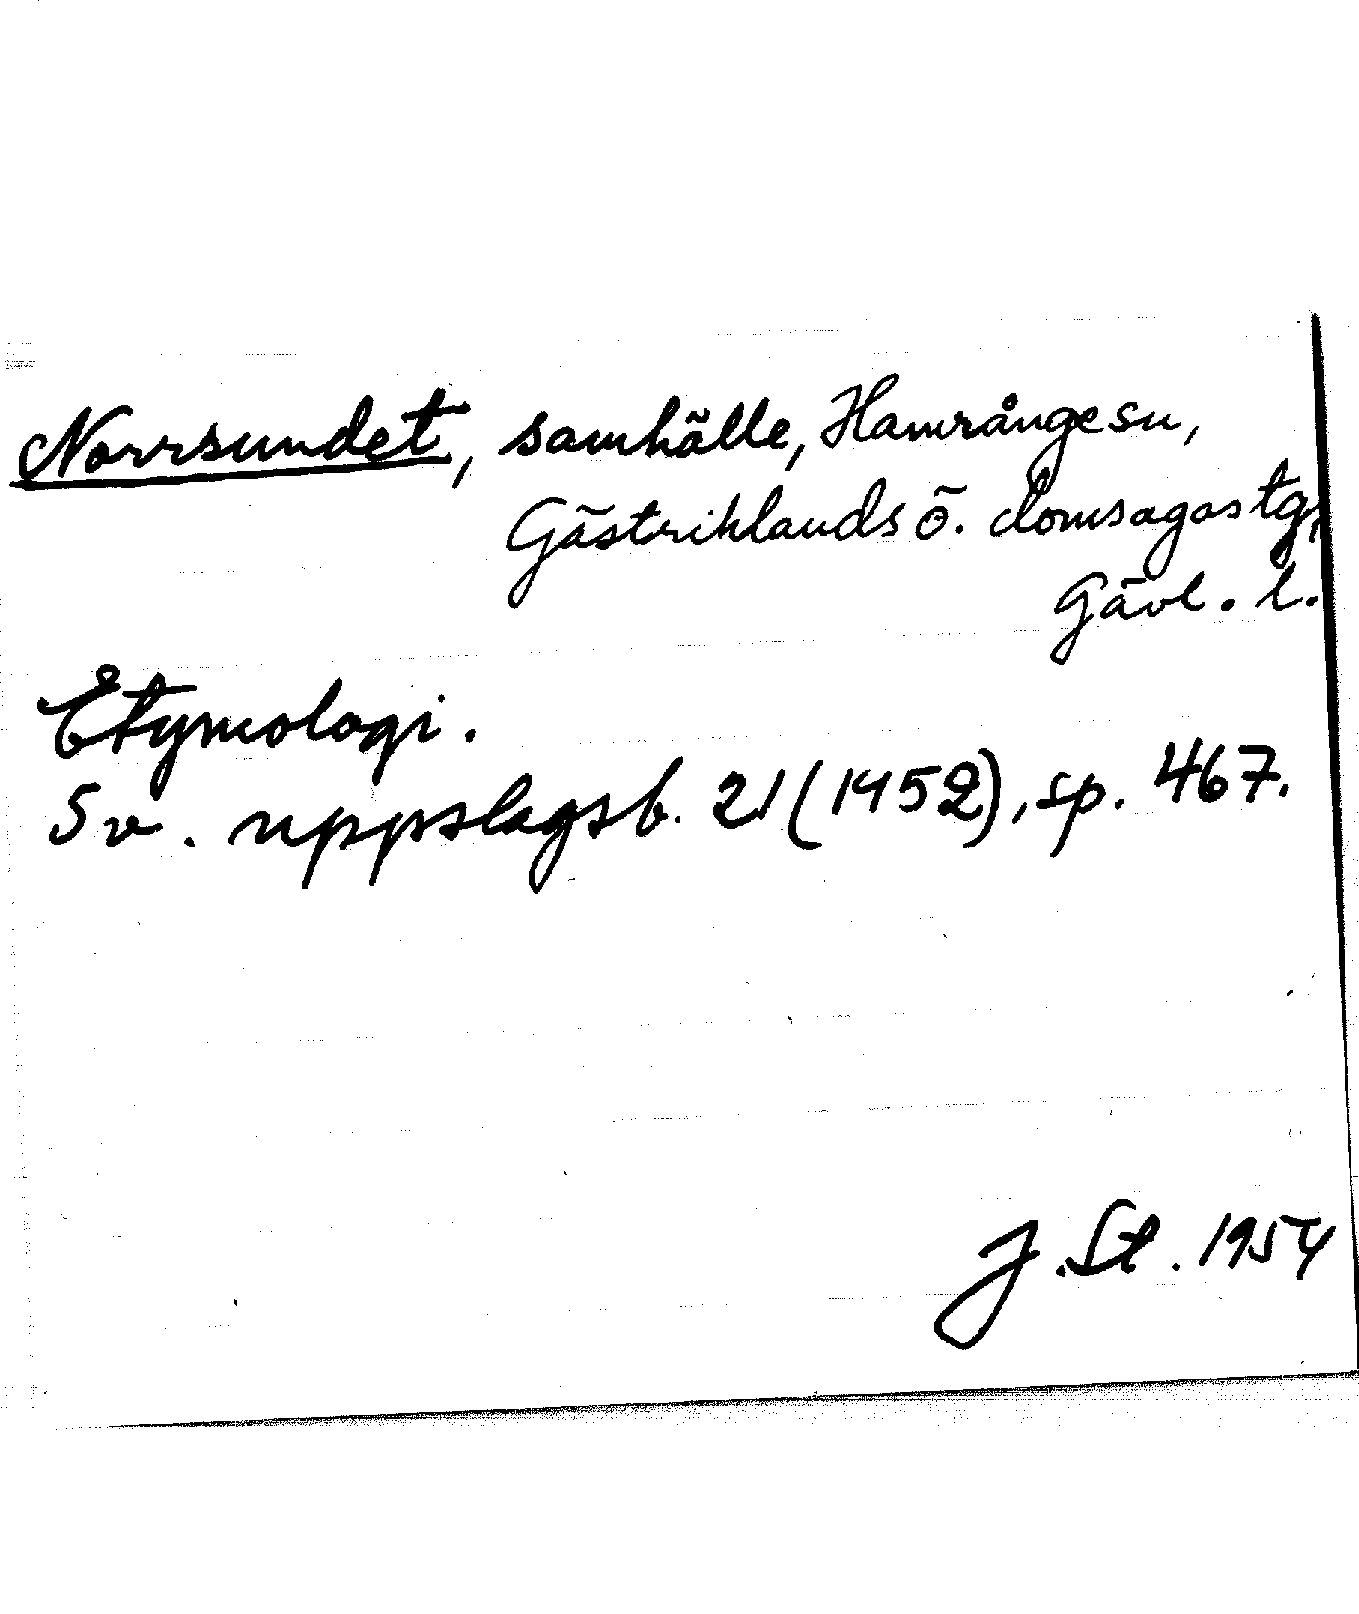 Norrsundet, samhälle, Hamrånge sn,
Gästriklands ö. domsagas tg,
Gävl. l.
Etymologi.
Sv. uppslagsb. 21 (1952), sp. 467.
J. St. 1954